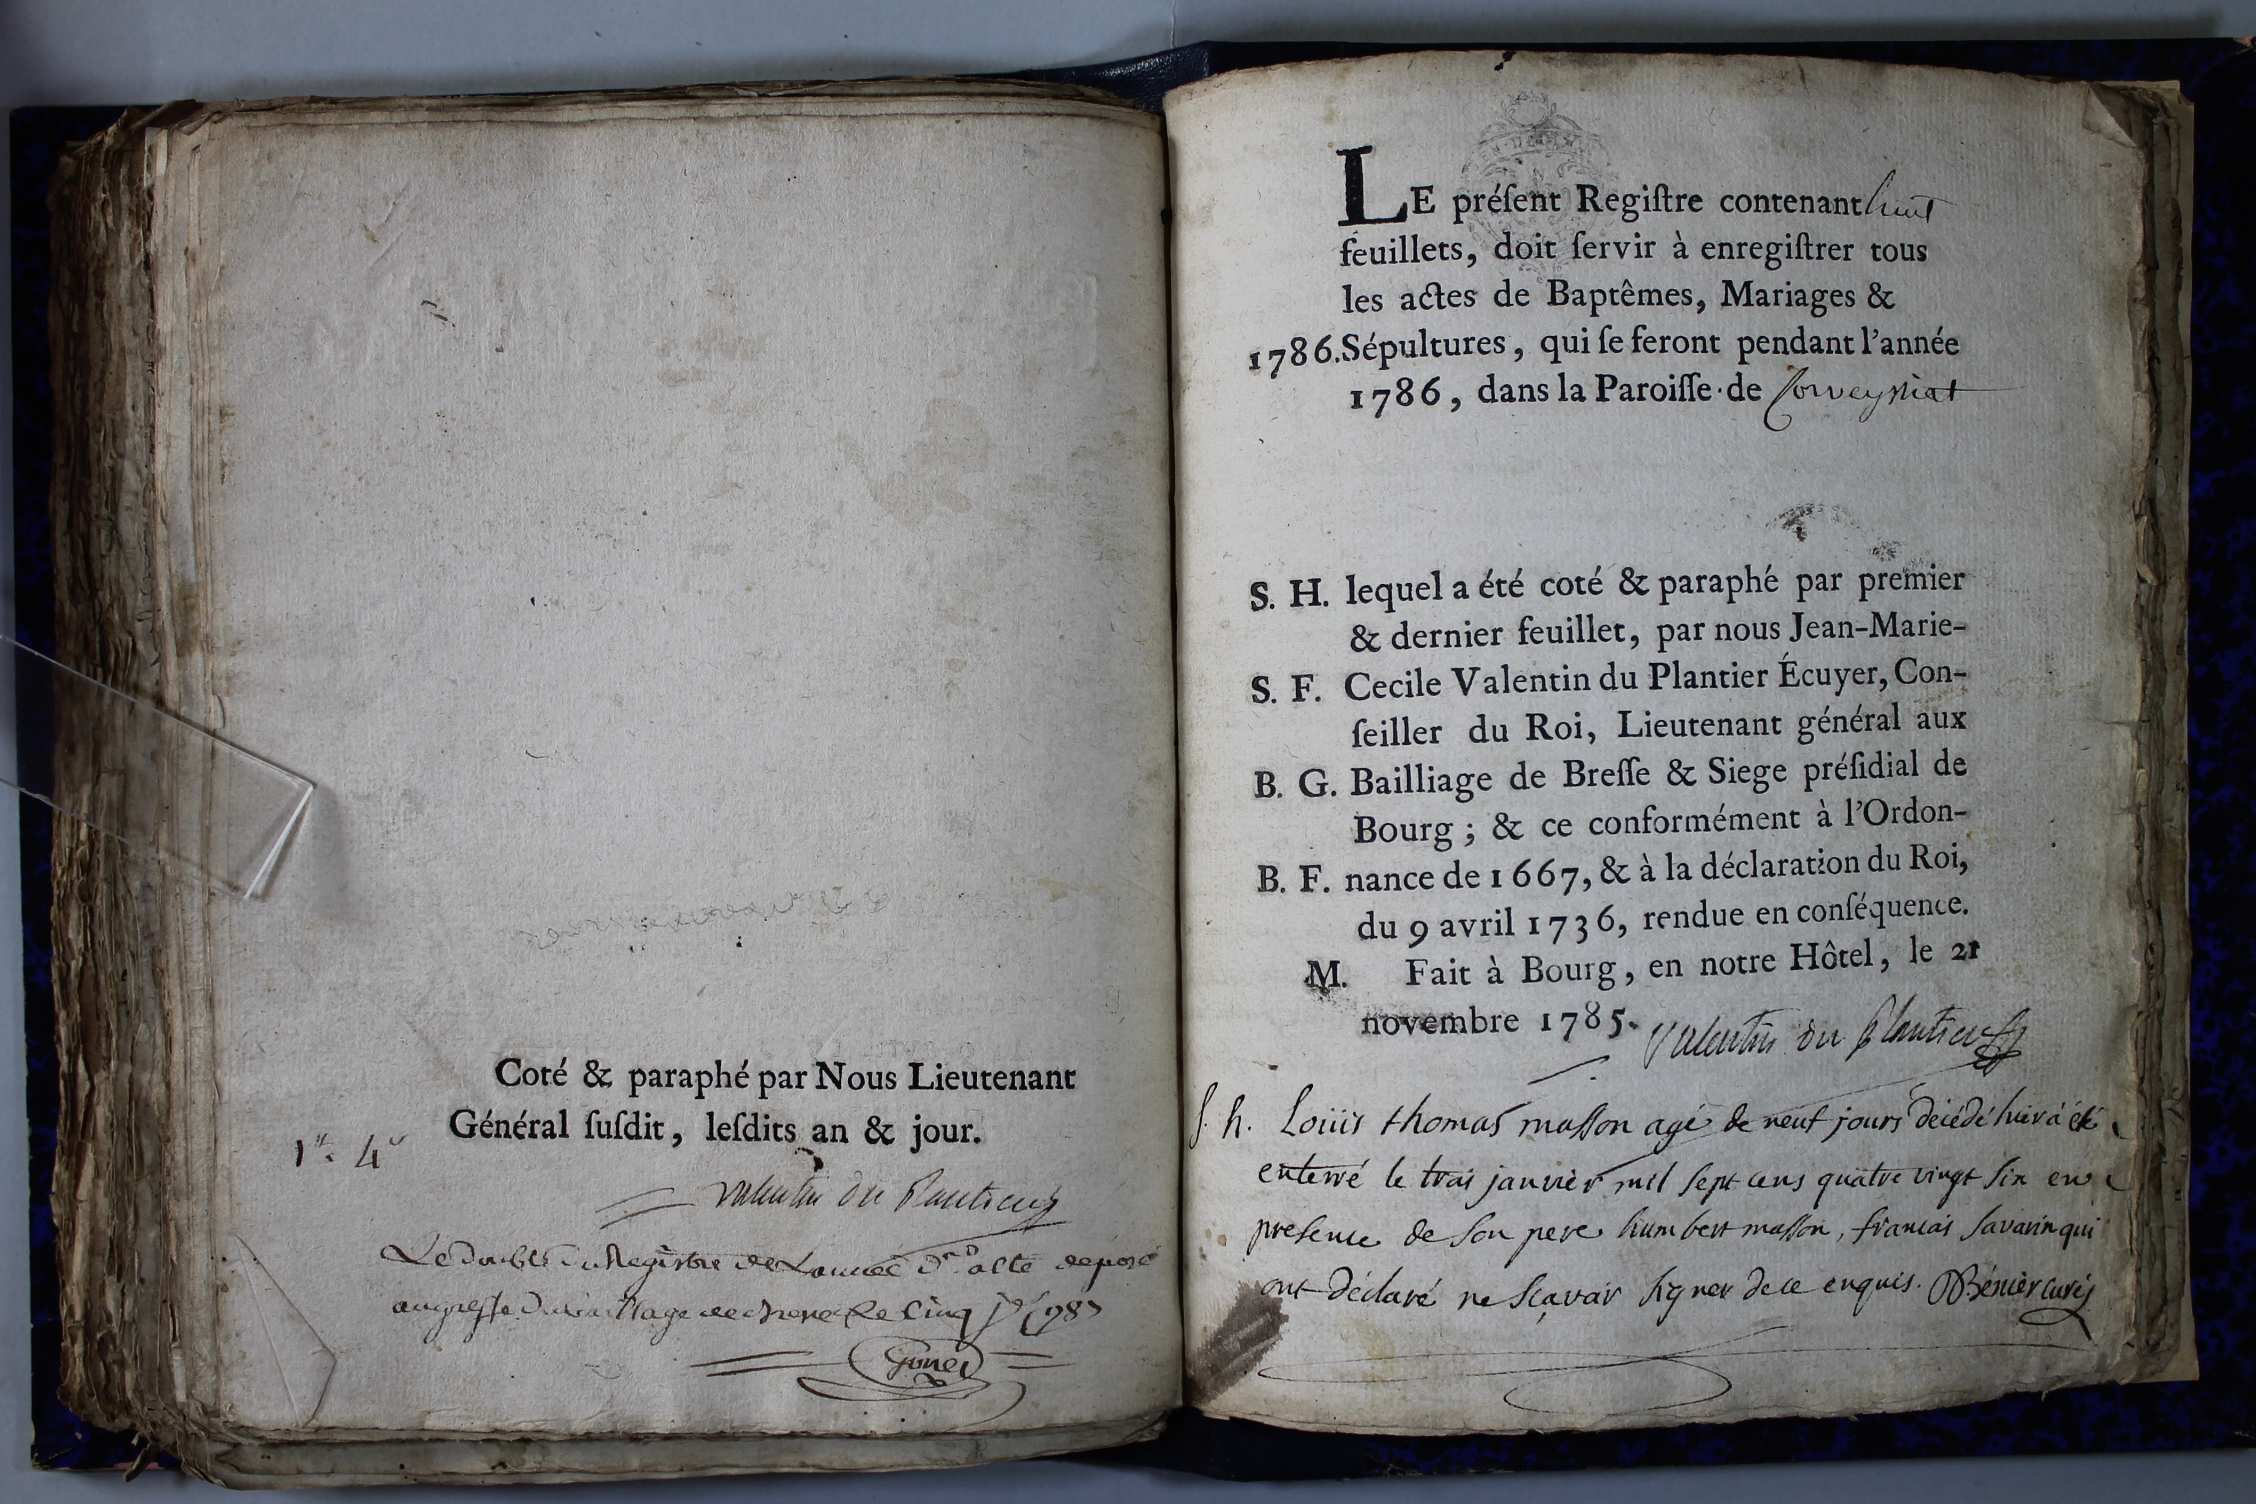 Coté & paraphé par Nous Lieutenant
Général ſuſdit, leſdits an & jour.
valentin du Plantier
Le double du Registre de L'année d. a été deposé
au greffe du Bailliage de le Cinq
LE préſent Regiſtre contenant huit
feuillets, doit ſervir à enregiſtrer tous
les actes de Baptêmes, Mariages &
1786. Sépultures, qui ſe feront pendant l'année
1786, dans la Paroiſſe de Corveyssiat
S. H. lequel a été coté & paraphé par premier
& dernier feuillet, par nous Jean-Marie-
S. F. Cecile Valentin du Plantier Écuyer, Con-
ſeiller du Roi, Lieutenant général aux
B. G. Bailliage de Breſſe & Siege préſidial de
Bourg ; & ce conformément à l'Ordon-
B. F. nance de 1667, & à la déclaration du Roi,
du 9 avril 1736, rendue en conſéquence.
M. Fait à Bourg, en notre Hôtel, le 21
novembre 1785. valentin du Plantier
S. h. Loüis thomas masson agé de neuf jours décédé hier a été
enterré le trois janvier mil sept cens quatre vingt six en
presence de son pere humbert masson, francais savarin qui
ont déclaré ne sçavoir signer de ce enquis. Bénier curé